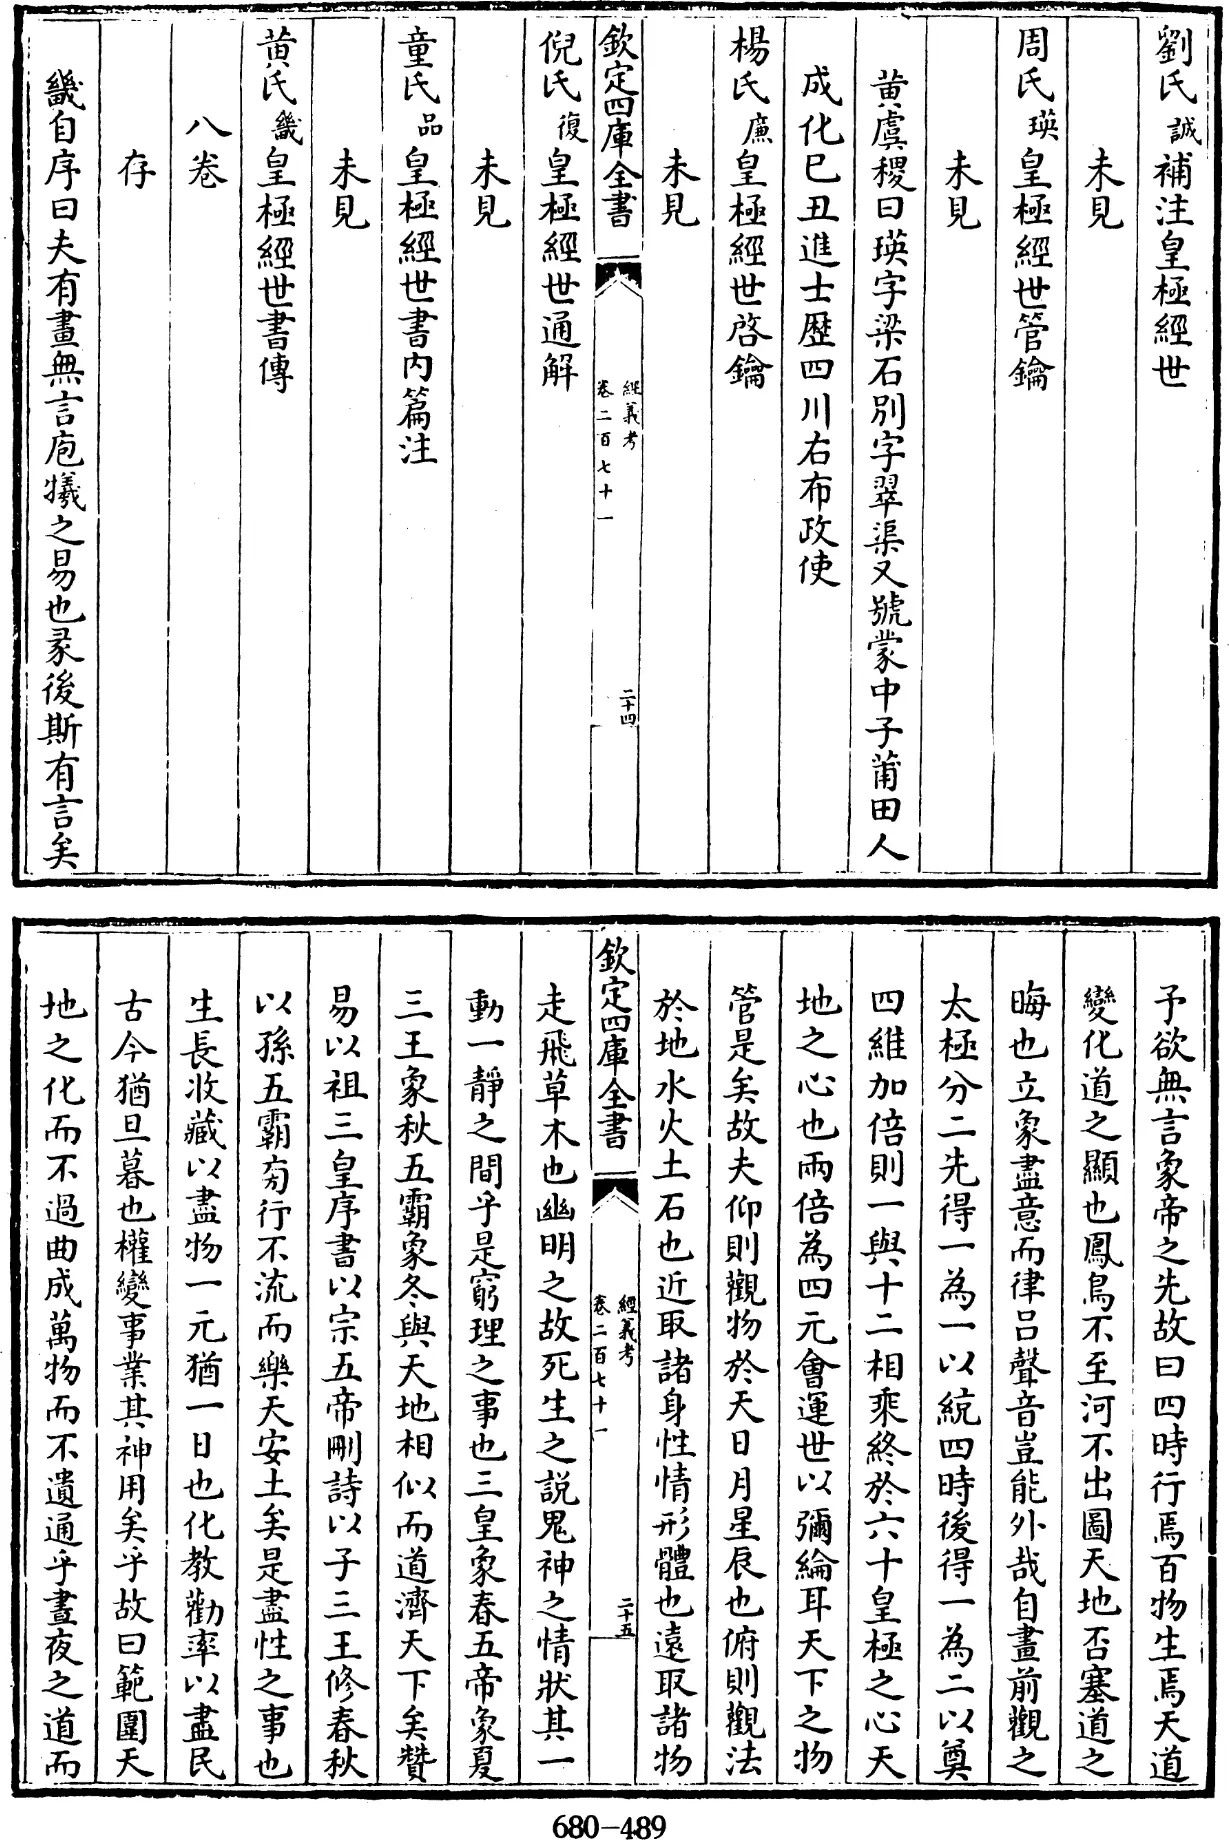 劉氏誠補注皇極經世
未見
周氏瑛皇極經世管鑰
未見
黄虞稷曰瑛字梁石別字翠渠又號蒙中子莆田人
成化已丑進士歴四川右布政使
楊氏廉皇極經世啓鑰
未見
欽定四庫全書 經義考 卷二百七十一 二十四
倪氏復皇極經世通解
未見
童氏品皇極經世書内篇注
未見
黄氏畿皇極經世書傳
八卷
存
畿自序曰夫有畫無言庖犧之易也彖後斯有言矣
予欲無言象帝之先故曰四時行焉百物生焉天道
變化道之顯也鳳鳥不至河不出圖天地否塞道之
晦也立象盡意而律吕聲音豈能外哉自畫前觀之
太極分二先得一為一以統四時後得一為二以奠
四維加倍則一與十二相乘終於六十皇極之心天
地之心也兩倍為四元會運世以彌綸耳天下之物
管是矣故夫仰則觀物於天日月星辰也俯則觀法
於地水火土石也近取諸身性情形體也遠取諸物
欽定四庫全書 經義考 卷二百七十一 二十五
走飛草木也幽明之故死生之説鬼神之情狀其一
動一靜之間乎是窮理之事也三皇象春五帝象夏
三王象秋五霸象冬與天地相似而道濟天下矣贊
易以祖三皇序書以宗五帝刪詩以子三王修春秋
以孫五霸旁行不流而樂天安土矣是盡性之事也
生長收藏以盡物一元猶一日也化教勸率以盡民
古今猶旦暮也權變事業其神用矣乎故曰範圍天
地之化而不過曲成萬物而不遺通乎晝夜之道而
680-489